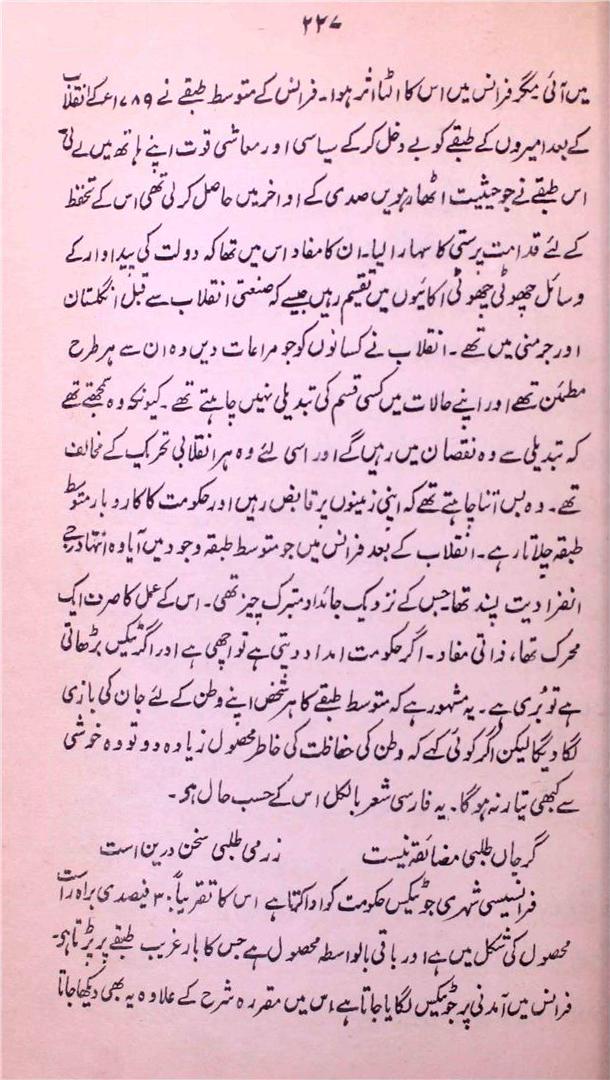 ۲۲۷
میں آئی مگر فرانس میں اس کا الٹا اثر ہوا۔ فرانس کے متوسط طبقے نے ۱۷۸۹ء کے انقلاب
کے بعد امیروں کے طبقے کو بے دخل کر کے سیاسی اور معاشی قوت اپنے ہاتھ میں لے لی
اس طبقے نے جو حیثیت اٹھارہویں صدی کے اواخر میں حاصل کر لی تھی اس کے تحفظ
کے لئے قدامت پرستی کا سہارا لیا۔ ان کا مفاد اس میں تھا کہ دولت کی پیداوار کے
وسائل چھوٹی چھوٹی اکائیوں میں تقسیم رہیں جیسے کہ صنعتی انقلاب سے قبل انگلستان
اور جرمنی میں تھے۔ انقلاب نے کسانوں کو جو مراعات دیں وہ ان سے ہر طرح
مطمئن تھے اور اپنے حالات میں کسی قسم کی تبدیلی نہیں چاہتے تھے۔ کیونکہ وہ سمجھتے تھے
کہ تبدیلی سے وہ نقصان میں رہیں گے اور اسی لئے وہ ہر انقلابی تحریک کے مخالف
تھے۔ وہ بس اتنا چاہتے تھے کہ اپنی زمینوں پر قابض رہیں اور حکومت کا کاروبار متوسط
طبقہ چلاتا رہے۔ انقلاب کے بعد فرانس میں جو متوسط طبقہ وجود میں آیا وہ انتہا درجے
انفرادیت پسند تھا جس کے نزدیک جائداد متبرک چیز تھی۔ اس کے عمل کا صرف ایک
محرک تھا، ذاتی مفاد۔ اگر حکومت امداد دیتی ہے تو اچھی ہے اور اگر ٹیکس بڑھاتی
ہے تو بُری ہے۔ یہ مشہور ہے کہ متوسط طبقے کا ہر شخص اپنے وطن کے لئے جان کی بازی
لگا دیگا لیکن اگر کوئی کہے کہ وطن کی حفاظت کی خاطر محصول زیادہ دو تو وہ خوشی
سے کبھی تیار نہ ہو گا۔ یہ فارسی شعر بالکل اس کے حسب حال ہے۔
گر جاں طلبی مضائقہ نیست زر می طلبی سخن درین است
فرانسیسی شہری جو ٹیکس حکومت کو ادا کرتا ہے اس کا تقریباً ۳۰ فیصدی براہ راست
محصول کی شکل میں ہے اور باقی بالواسطہ محصول ہے جس کا بار غریب طبقے پر پڑتا ہے۔
فرانس میں آمدنی پر جو ٹیکس لگایا جاتا ہے اس میں مقررہ شرح کے علاوہ یہ بھی دیکھا جاتا